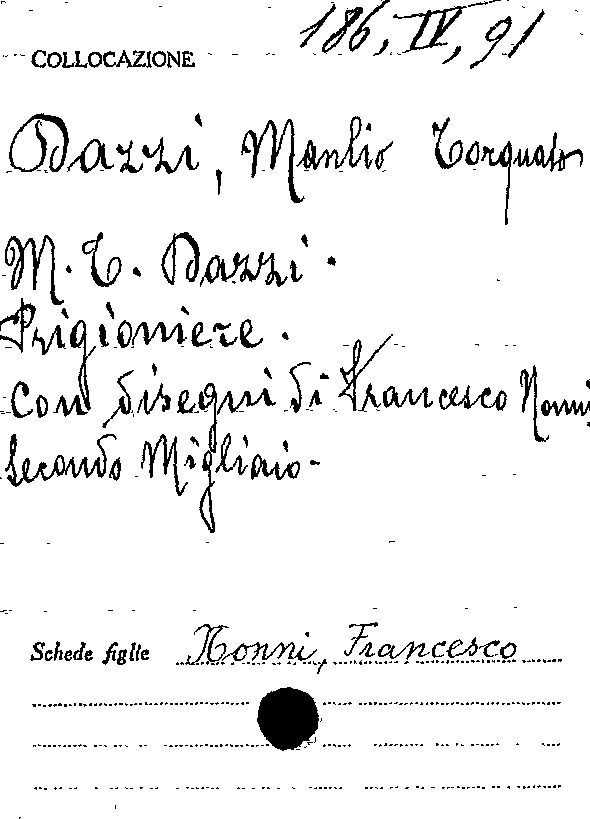 186, IV, 91
COLLOCAZIONE
Dazzi, Manlio Torquato
M. T. Dazzi.
Prigioniere.
Con disegni di Francesco Nonni
Secondo Migliaio.
Schede figlie Nonni, Francesco